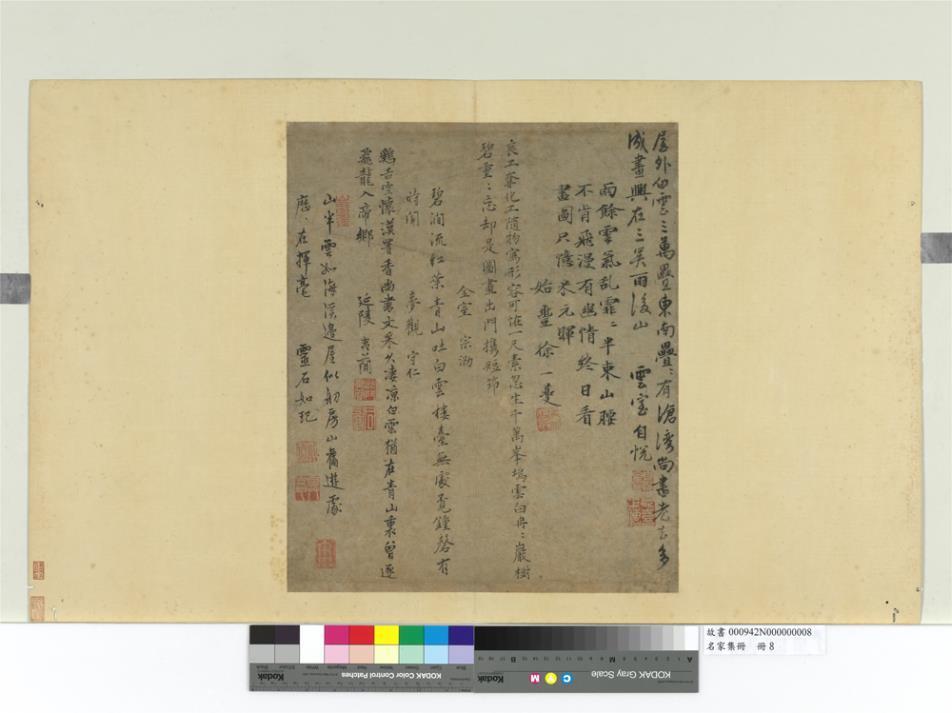 屋外白雲三萬疊東南疊疊有滄灣尚書老去多
成畫興在三吳雨後山　雲室自悅
雨餘雲氣乱霏霏半束山腰
不肯飛漫有幽情終日看
畫圖只憶米元暉
始豐徐一夔
良工奪化工隨物寫形容可恠一尺素忽生千萬峯塢雲白冉冉巖樹
碧重重忘却是圖畫出門携短筇
全室　宗泐
碧澗流紅葉青山吐白雲樓臺無處覓鐘磬有
時聞　夢觀　守仁
鷄舌空懷漢署香尚書文采久凄凉白雲猶在青山裏曾逐
飛龍入帝鄉　延陵
山半雲如海溪邊屋似舠房山舊遊處
歷歷在揮毫　靈石如玘
故書 000942N000000008
名家集冊 冊 8
KODAK Color Control Patches
KODAK Gray Scale
Kodak
C Y M
A
M
B